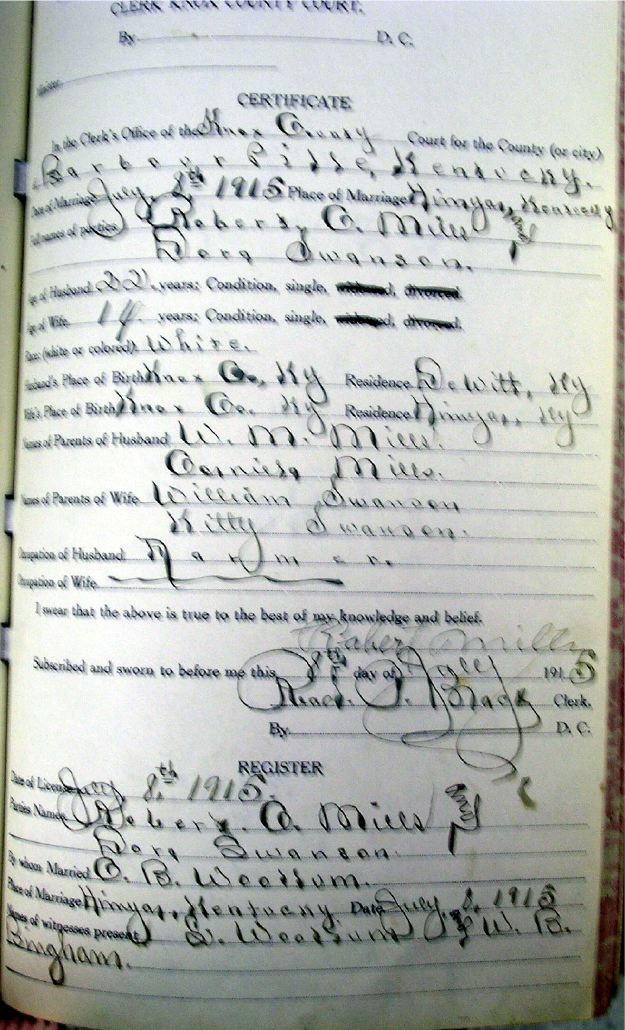 CLERK KNOX COUNTY COURT.
By D. C.
CERTIFICATE
In the Clerk's Office of the Knox County Court for the County (or city)
Barbourville, Kentucky.
Date of Marriage July, 8th 1915 Place of Marriage Himyar, Kentucky
Full names of parties Robert, O. Mills and
Dora Swanson.
Age of Husband 22, years; Condition, single, widowed, divorced.
Age of Wife 14 years; Condition, single, widowed, divorced.
Race (white or colored) White.
Husband's Place of Birth Knox Co, Ky Residence DeWitt, Ky
Wife's Place of Birth Knox Co. Ky Residence Himyar, Ky
Names of Parents of Husband W. M. Mills.
Mills.
Names of Parents of Wife William Swanson
Kitty Swanson.
Occupation of Husband Farmer.
Occupation of Wife
I swear that the above is true to the best of my knowledge and belief.
Robert Mills
Subscribed and sworn to before me this 8th day of July 1915
Read P. Black Clerk.
By D. C.
REGISTER
Date of License July 8th 1915.
Parties Names Robert. O. Mills and
Dora Swanson.
By whom Married O. B. Woolum.
Place of Marriage Himyar, Kentucky. Date July, 8, 1915
Names of witnesses present Woolum & W. B.
Bingham.